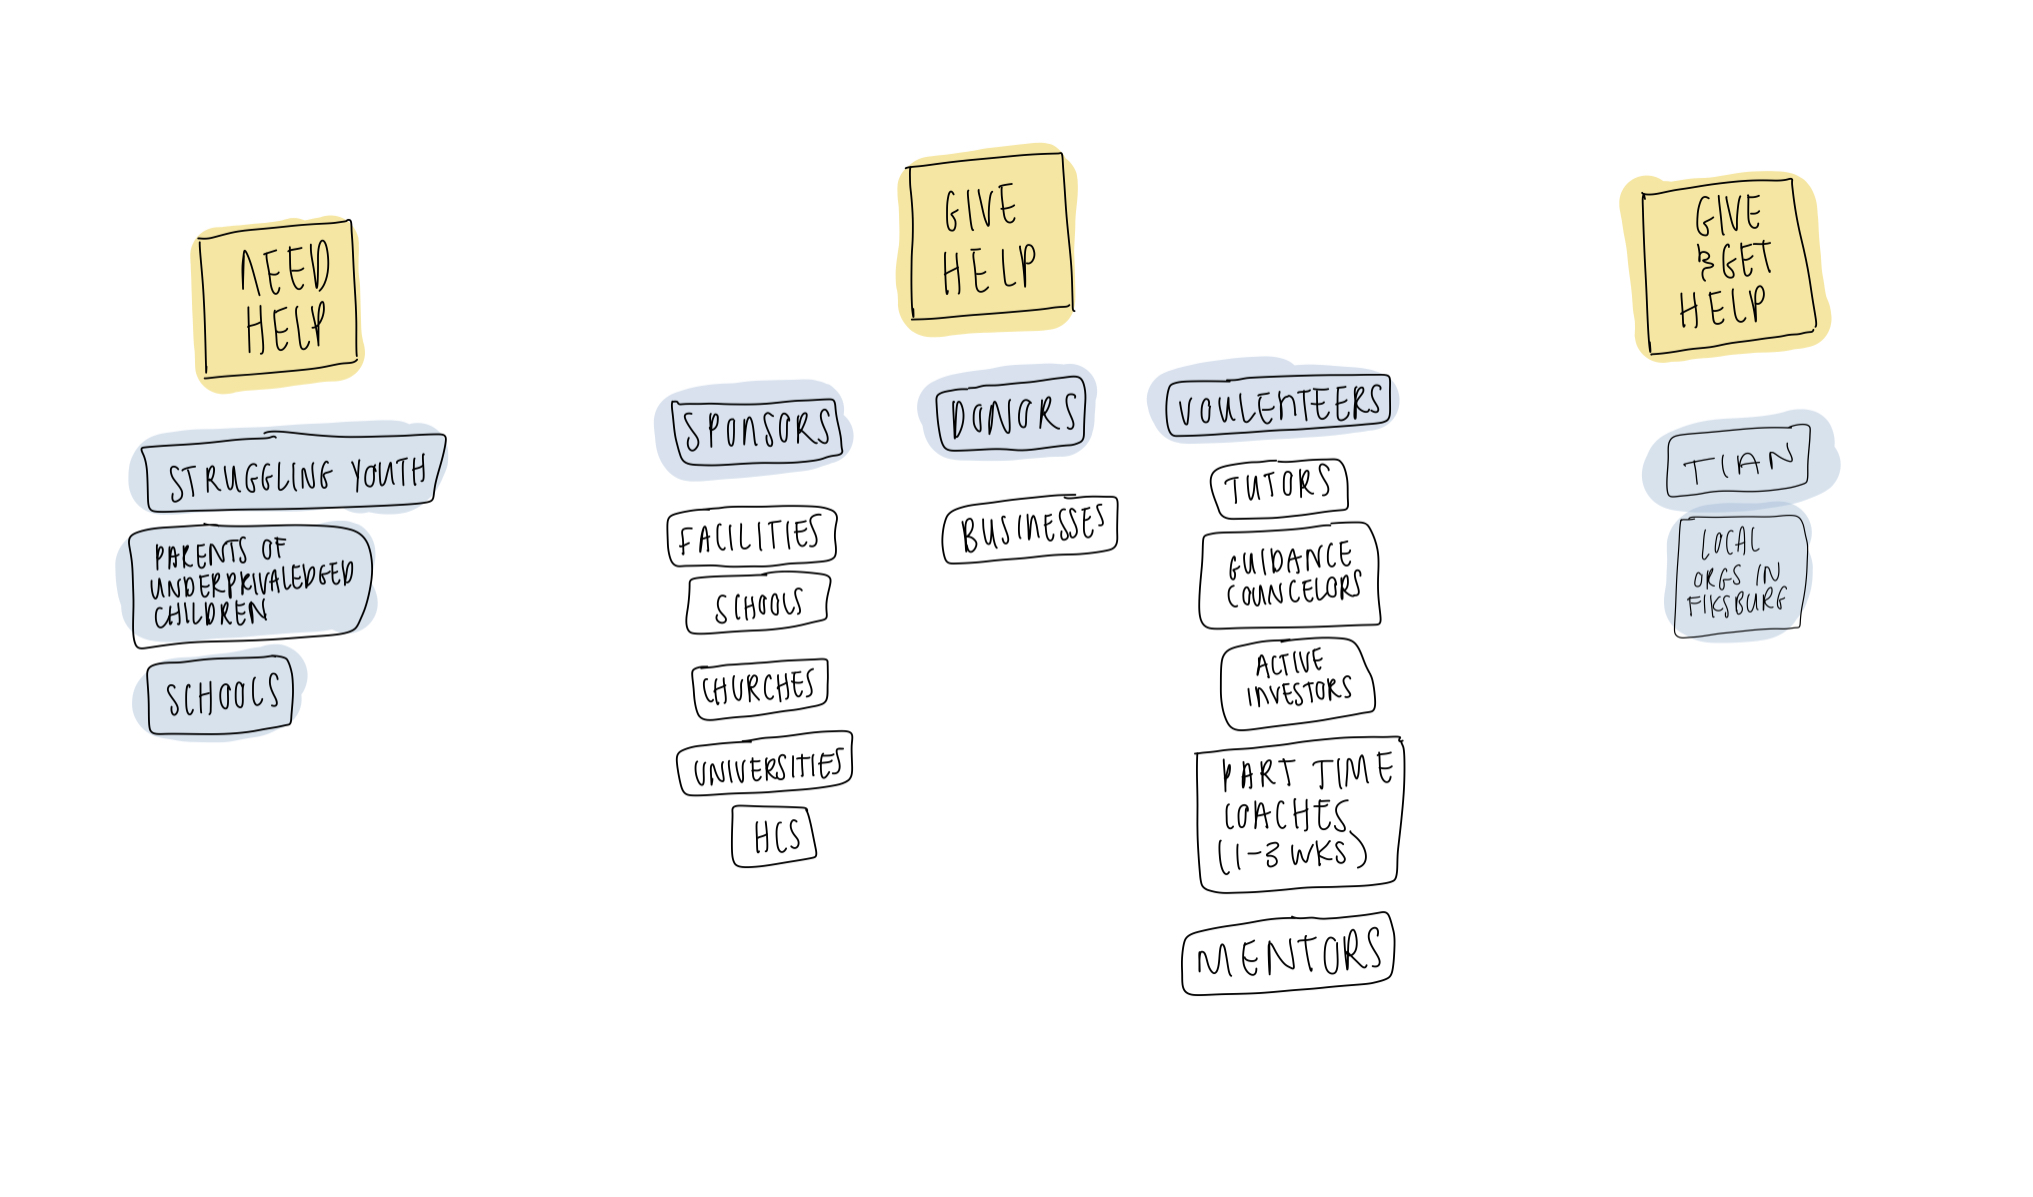 NEED
HELP
STRUGGLING YOUTH
PARENTS OF
UNDERPRIVALEDGED
CHILDREN
SCHOOLS
GIVE
HELP
SPONSORS
FACILITIES
SCHOOLS
CHURCHES
UNIVERSITIES
HCS
DONORS
BUSINESSES
VOULENTEERS
TUTORS
GUIDANCE
COUNCELORS
ACTIVE
INVESTORS
PART TIME
COACHES
(1-3 WKS)
MENTORS
GIVE
& GET
HELP
TIAN
LOCAL
ORGS IN
FIKSBURG